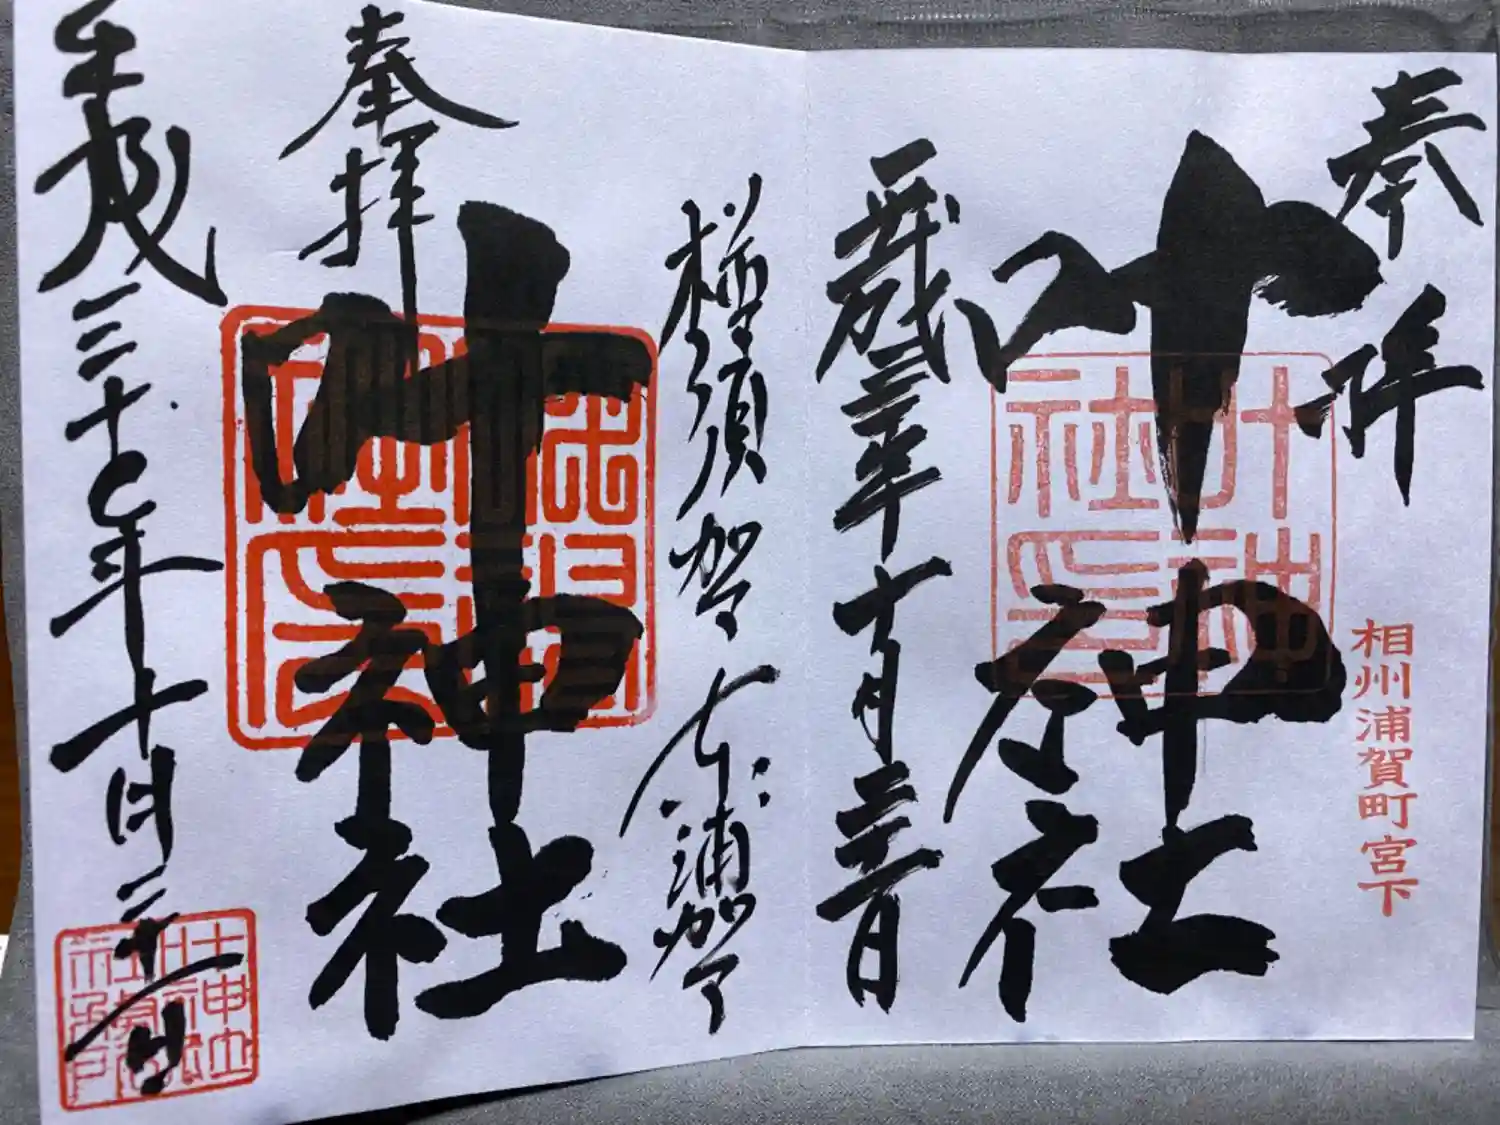 奉拝
相州浦賀町宮下
叶神社
叶神社
平成三十年十月二十一日
横須賀 東浦賀
奉拝
叶神社
平成三十年十月二十一日